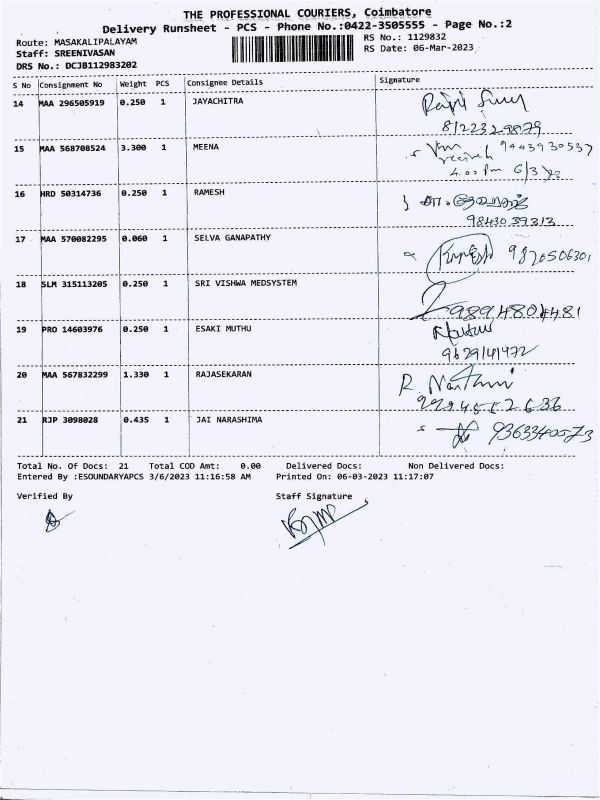 THE PROFESSIONAL COURIERS, Coimbatore
Delivery Runsheet - PCS - Phone No.:0422-3505555 - Page No.:2
Route: MASAKALIPALAYAM
RS No.: 1129832
Staff: SREENIVASAN
RS Date: 06-Mar-2023
DRS No.: DCJB112983202
S No Consignment No Weight PCS Consignee Details Signature
14 MAA 296505919 0.250 1 JAYACHITRA
8122329879
15 MAA 568708524 3.300 1 MEENA 9443930537
4.00 Pm 6/3
16 HRD 50314736 0.250 1 RAMESH
9843039313
17 MAA 570082295 0.060 1 SELVA GANAPATHY
9870506301
18 SLM 315113205 0.250 1 SRI VISHWA MEDSYSTEM
9894804481
19 PRO 14603976 0.250 1 ESAKI MUTHU
9629141972
20 MAA 567832299 1.330 1 RAJASEKARAN
R.
9994552636
21 RJP 3098028 0.435 1 JAI NARASHIMA
9363340573
Total No. Of Docs: 21 Total COD Amt: 0.00 Delivered Docs: Non Delivered Docs:
Entered By :ESOUNDARYAPCS 3/6/2023 11:16:58 AM Printed On: 06-03-2023 11:17:07
Verified By Staff Signature